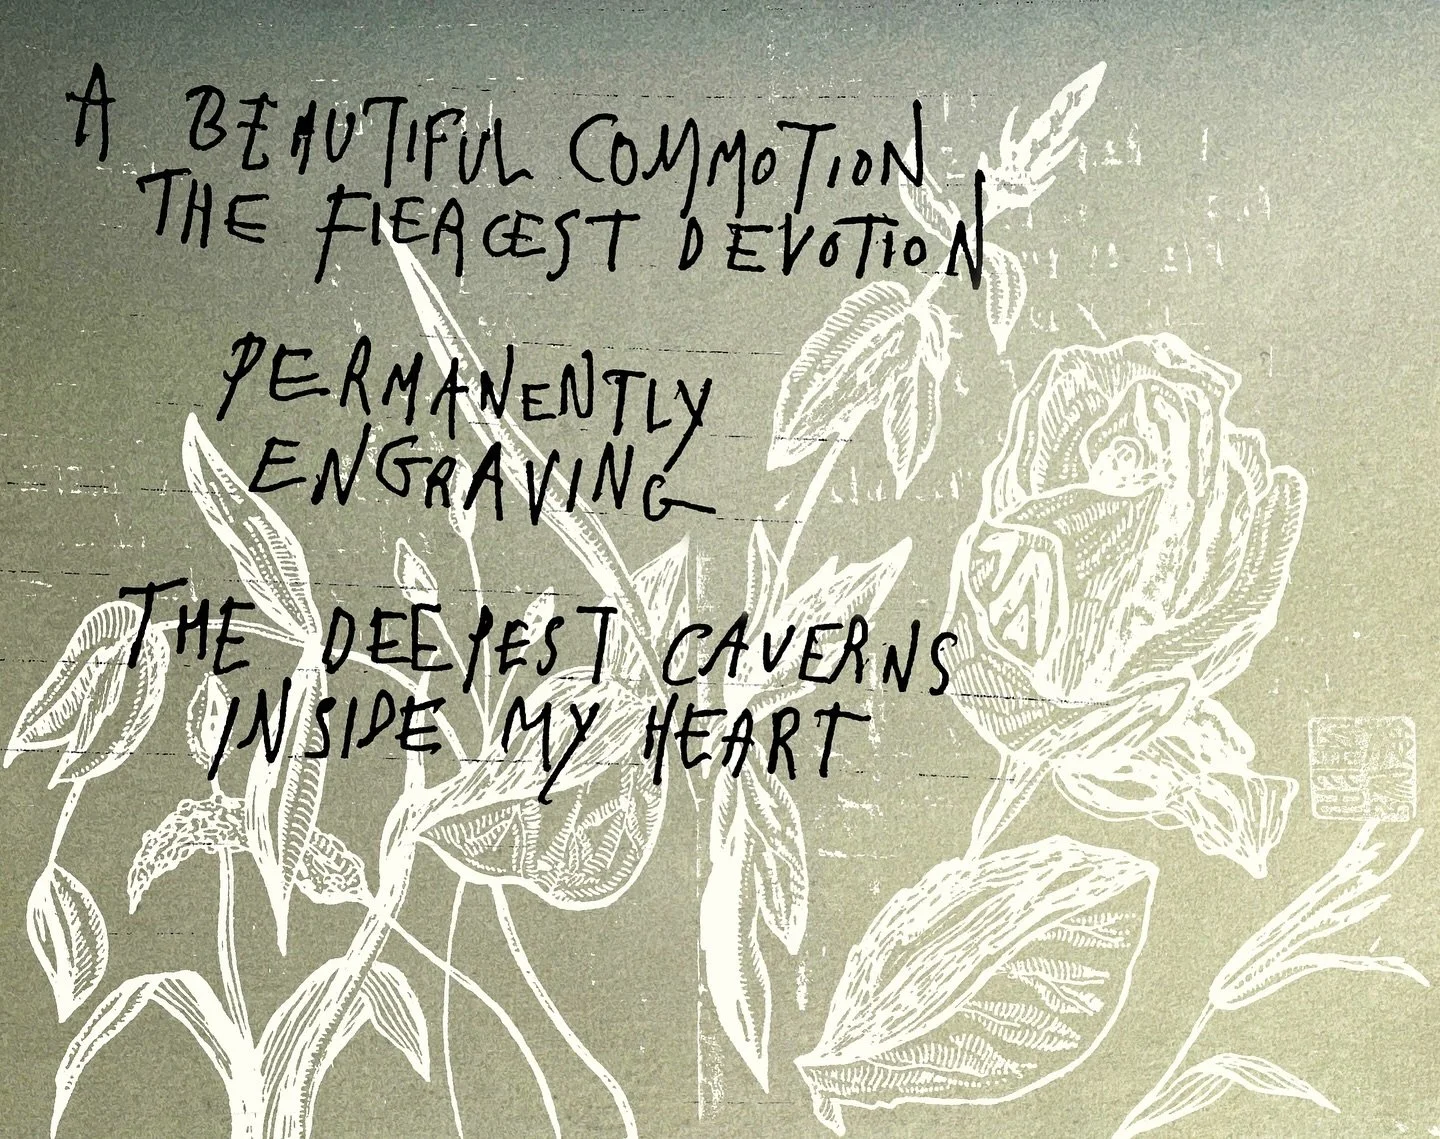 A BEAUTIFUL COMMOTION
THE FIERCEST DEVOTION
PERMANENTLY
ENGRAVING
THE DEEPEST CAVERNS
INSIDE MY HEART